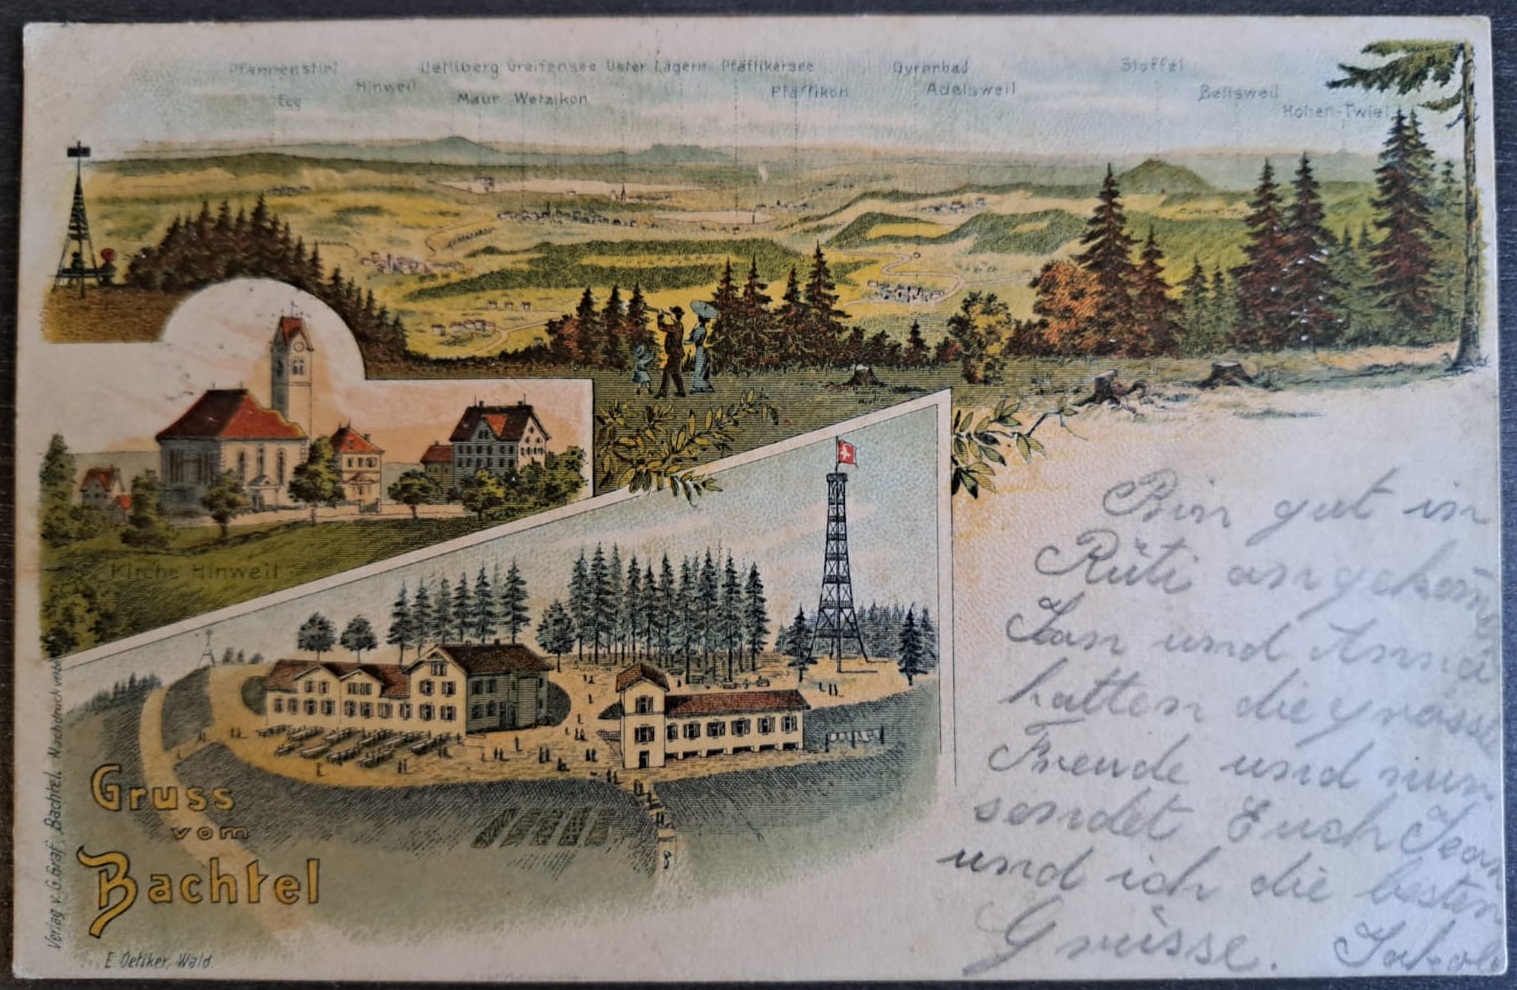 Pfannenstiel
Egg
Hinweil
Uetliberg Greifensee Uster Lägern Pfäffikersee
Maur Wetzikon
Pfäffikon
Gyrenbad
Adelsweil
Stoffel
Bettsweil
Hohen-Twiel
Kirche Hinweil
Gruss
vom
Bachtel
Verlag v. G. Graf, Bachtel. Nachdruck verboten
E. Oetiker, Wald.
Bin gut in
Rüti angekom̄en
Jean und Anna
hatten die grosse
Freude und nun
sendet Euch Jean
und ich die besten
Grüsse. Jakob